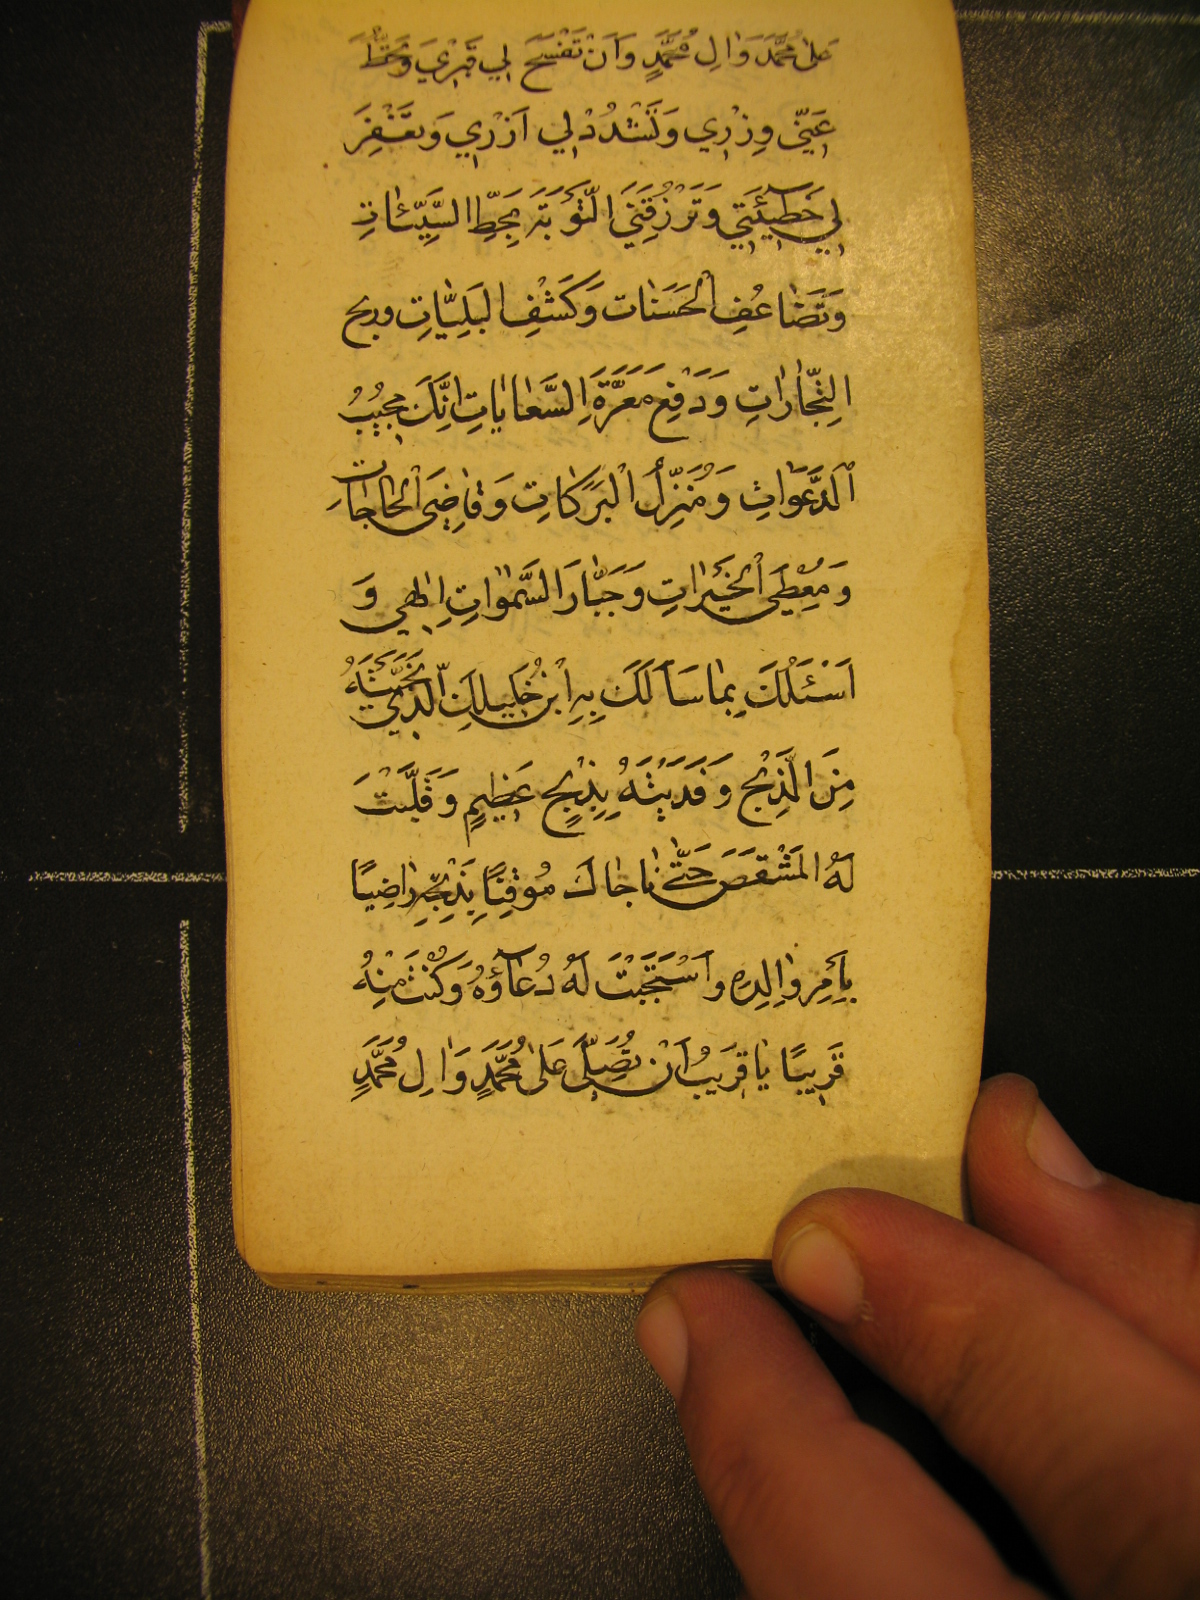 عَلىٰ مُحَمَّدٍ وَاٰلِ مُحَمَّدٍ وَاَنْ تَفْسَحَ لِي قَبْرِي وَتَحُطَّ
عَنّي وِزْرِي وَتَشْدُدْ لِي اَزْرِي وَتَغْفِرَ
لِي خَطٓيئَتِي وَتَرْزُقَنِي التَّوْبَةَ بِحَطِّ السَّيِّئٰاتِ
وَتَضٰاعُفِ الْحَسَنٰات وَكَشْفِ البَلِيّٰاتِ وربح
التِّجٰارٰاتِ وَدَفْعِ مَعَرَّةِ السَّعٰايٰاتِ اِنَّكَ مجيبُ
الْدَّعَوٰاتِ وَمُنَزِّلُ الْبَرَكٰاتِ وَقٰاضِيَ الْحٰاجٰاتِ
وَمُعْطِي الْخَيْرٰاتِ وَجَبّٰارَ السَّمٰوٰاتِ اِلٰهي وَ
اَسْئَلُكَ بِمٰا سَأَلَكَ بِهِ ابْنُ خَليلِكَ الَّذي نَجَّيْتَهُ
مِنَ الَّذِبْحِ وَفَدَيْتَهُ بِذِبْحٍ عَظيمٍ وَقَلَّبْتَ
لَهُ المَشْقَصَ حَتّٰى نٰاجٰاكَ مُوقِنًا بِذَبْحِهِ رٰاضِيًا
بِاَمْرِ وٰالِدِهِ واَسْتَجَبْتَ لَهُ دُعٰآؤَهُ وَكُنْتَ مِنْهُ
قَرِيبًا يٰا قَرِيبُ اَنْ تُصَلِّيَ عَلىٰ مُحَمَّدٍ وَاٰلِ مُحَمَّدٍ